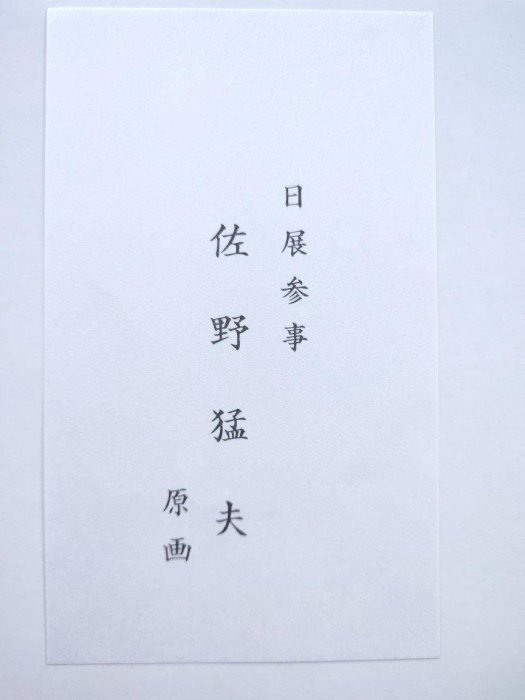 日展参事
佐野猛夫
原画